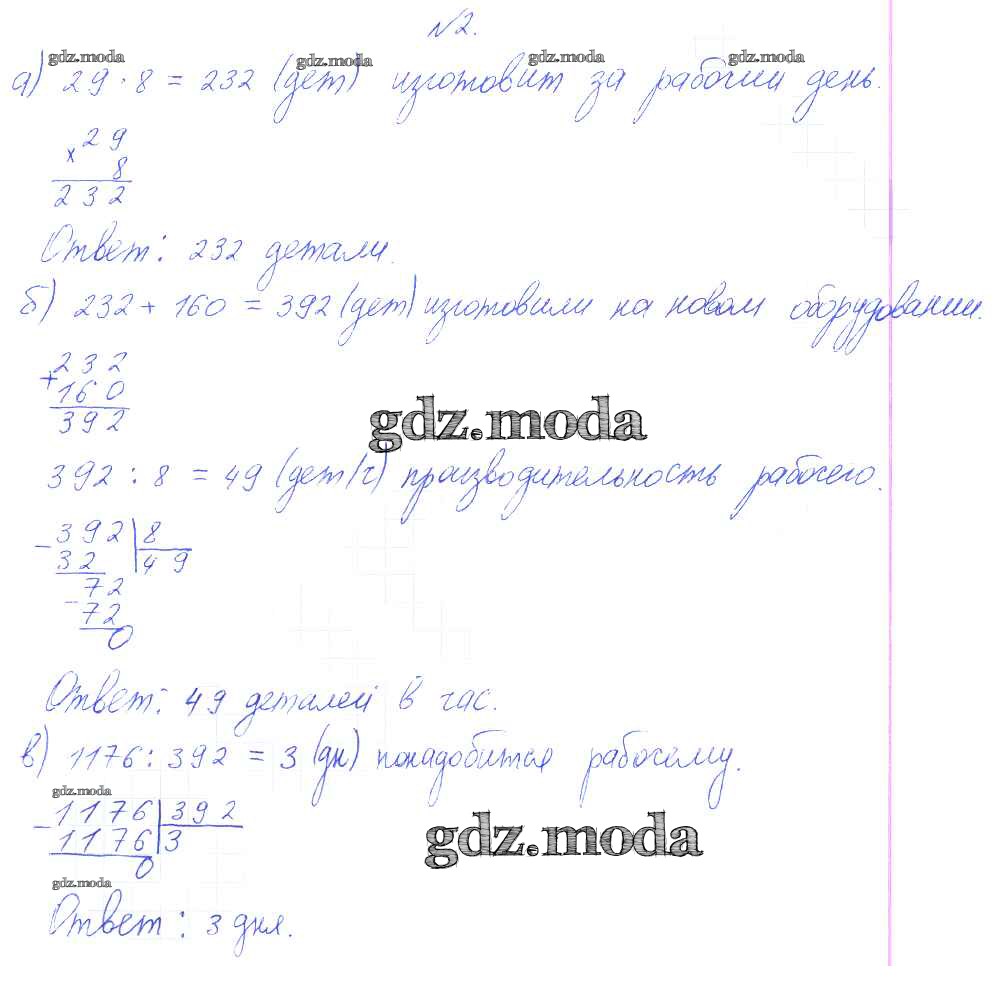 №2.
gdz.moda gdz.moda gdz.moda gdz.moda
а) 29 · 8 = 232 (дет) изготовит за рабочий день.
× 29
8
232
Ответ: 232 детали.
б) 232 + 160 = 392 (дет) изготовили на новом оборудовании.
+ 232
160
392
gdz.moda
392 : 8 = 49 (дет/ч) производительность рабочего.
- 392 | 8
32 | 49
- 72
72
0
Ответ: 49 деталей в час.
в) 1176 : 392 = 3 (дн) понадобится рабочему.
gdz.moda
- 1176 | 392
1176 | 3
0
gdz.moda
gdz.moda
Ответ: 3 дня.